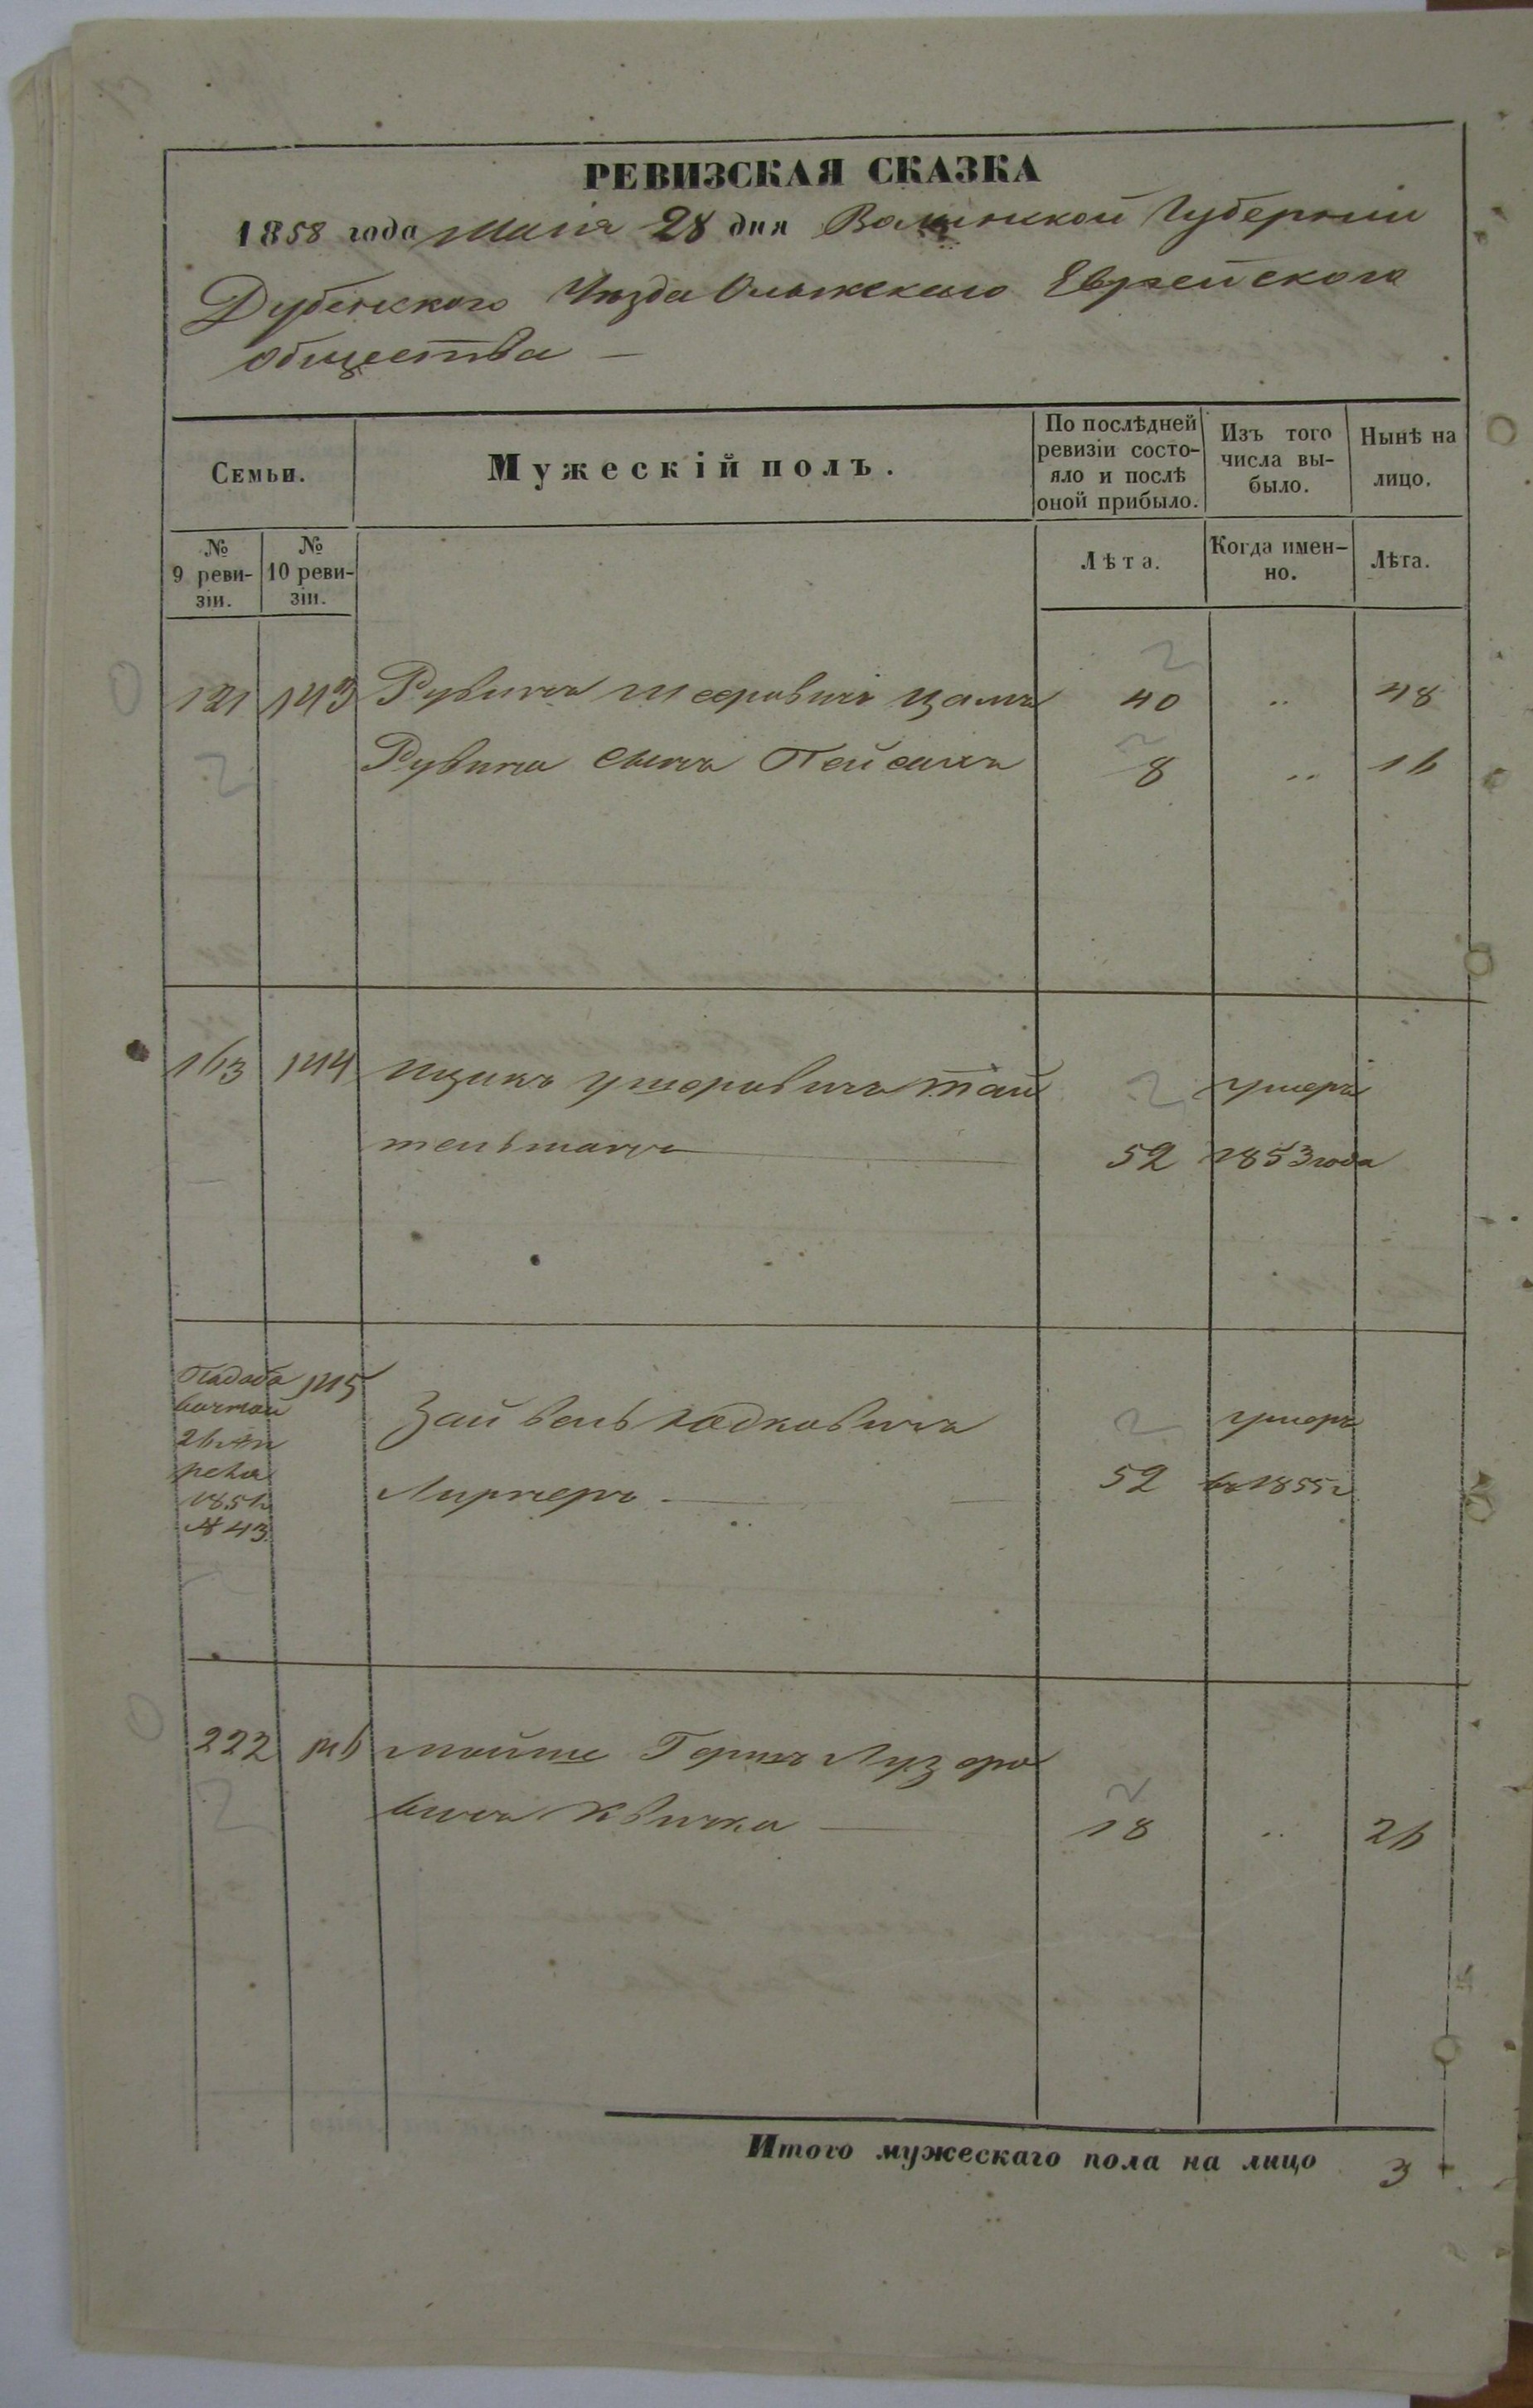 РЕВИЗСКАЯ СКАЗКА
1858 года Маія 28 дня Волынской Губерніи
Дубенского Уѣзда Олыжского Еврейского
общества —
Семьи.
Мужескій полъ.
По послѣдней ревизіи состояло и послѣ оной прибыло.
Изъ того числа выбыло.
Нынѣ на лицо.
№ 9 ревизіи.
№ 10 ревизіи.
Лѣта.
Когда именно.
Лѣта.
121 143 Рувинъ 40 .. 48
Рувина сынъ Пейсахъ 8 .. 16
163 144 Ицикъ Ушеровичъ Тай умеръ
тельманъ 52 1853 года
145
26 Ап
реля
1851
№ 43
Зайвель умеръ
Лирнеръ 52 въ 1855 г
222 146 Мойше Гершъ Лузеро
вичъ Квичка 18 .. 26
Итого мужескаго пола на лицо 3